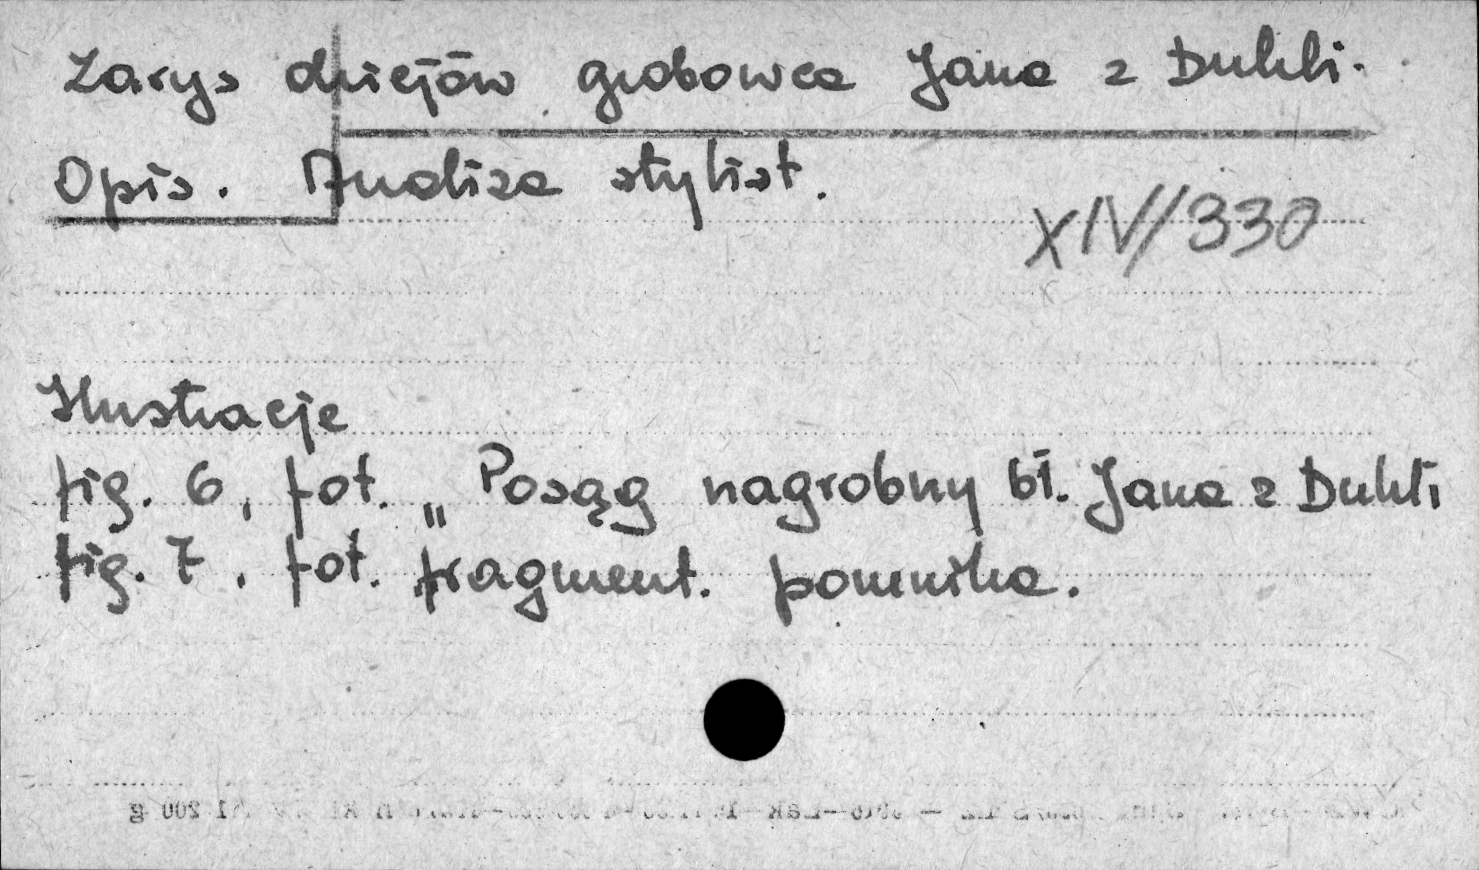 Zarys dziejów grobowca Jana z Dukli.
Opis. Analiza stylist.
XIV/330
Ilustracje
fig. 6, fot. „Posąg nagrobny bł. Jana z Dukli
fig. 7, fot. fragment. pomnika.